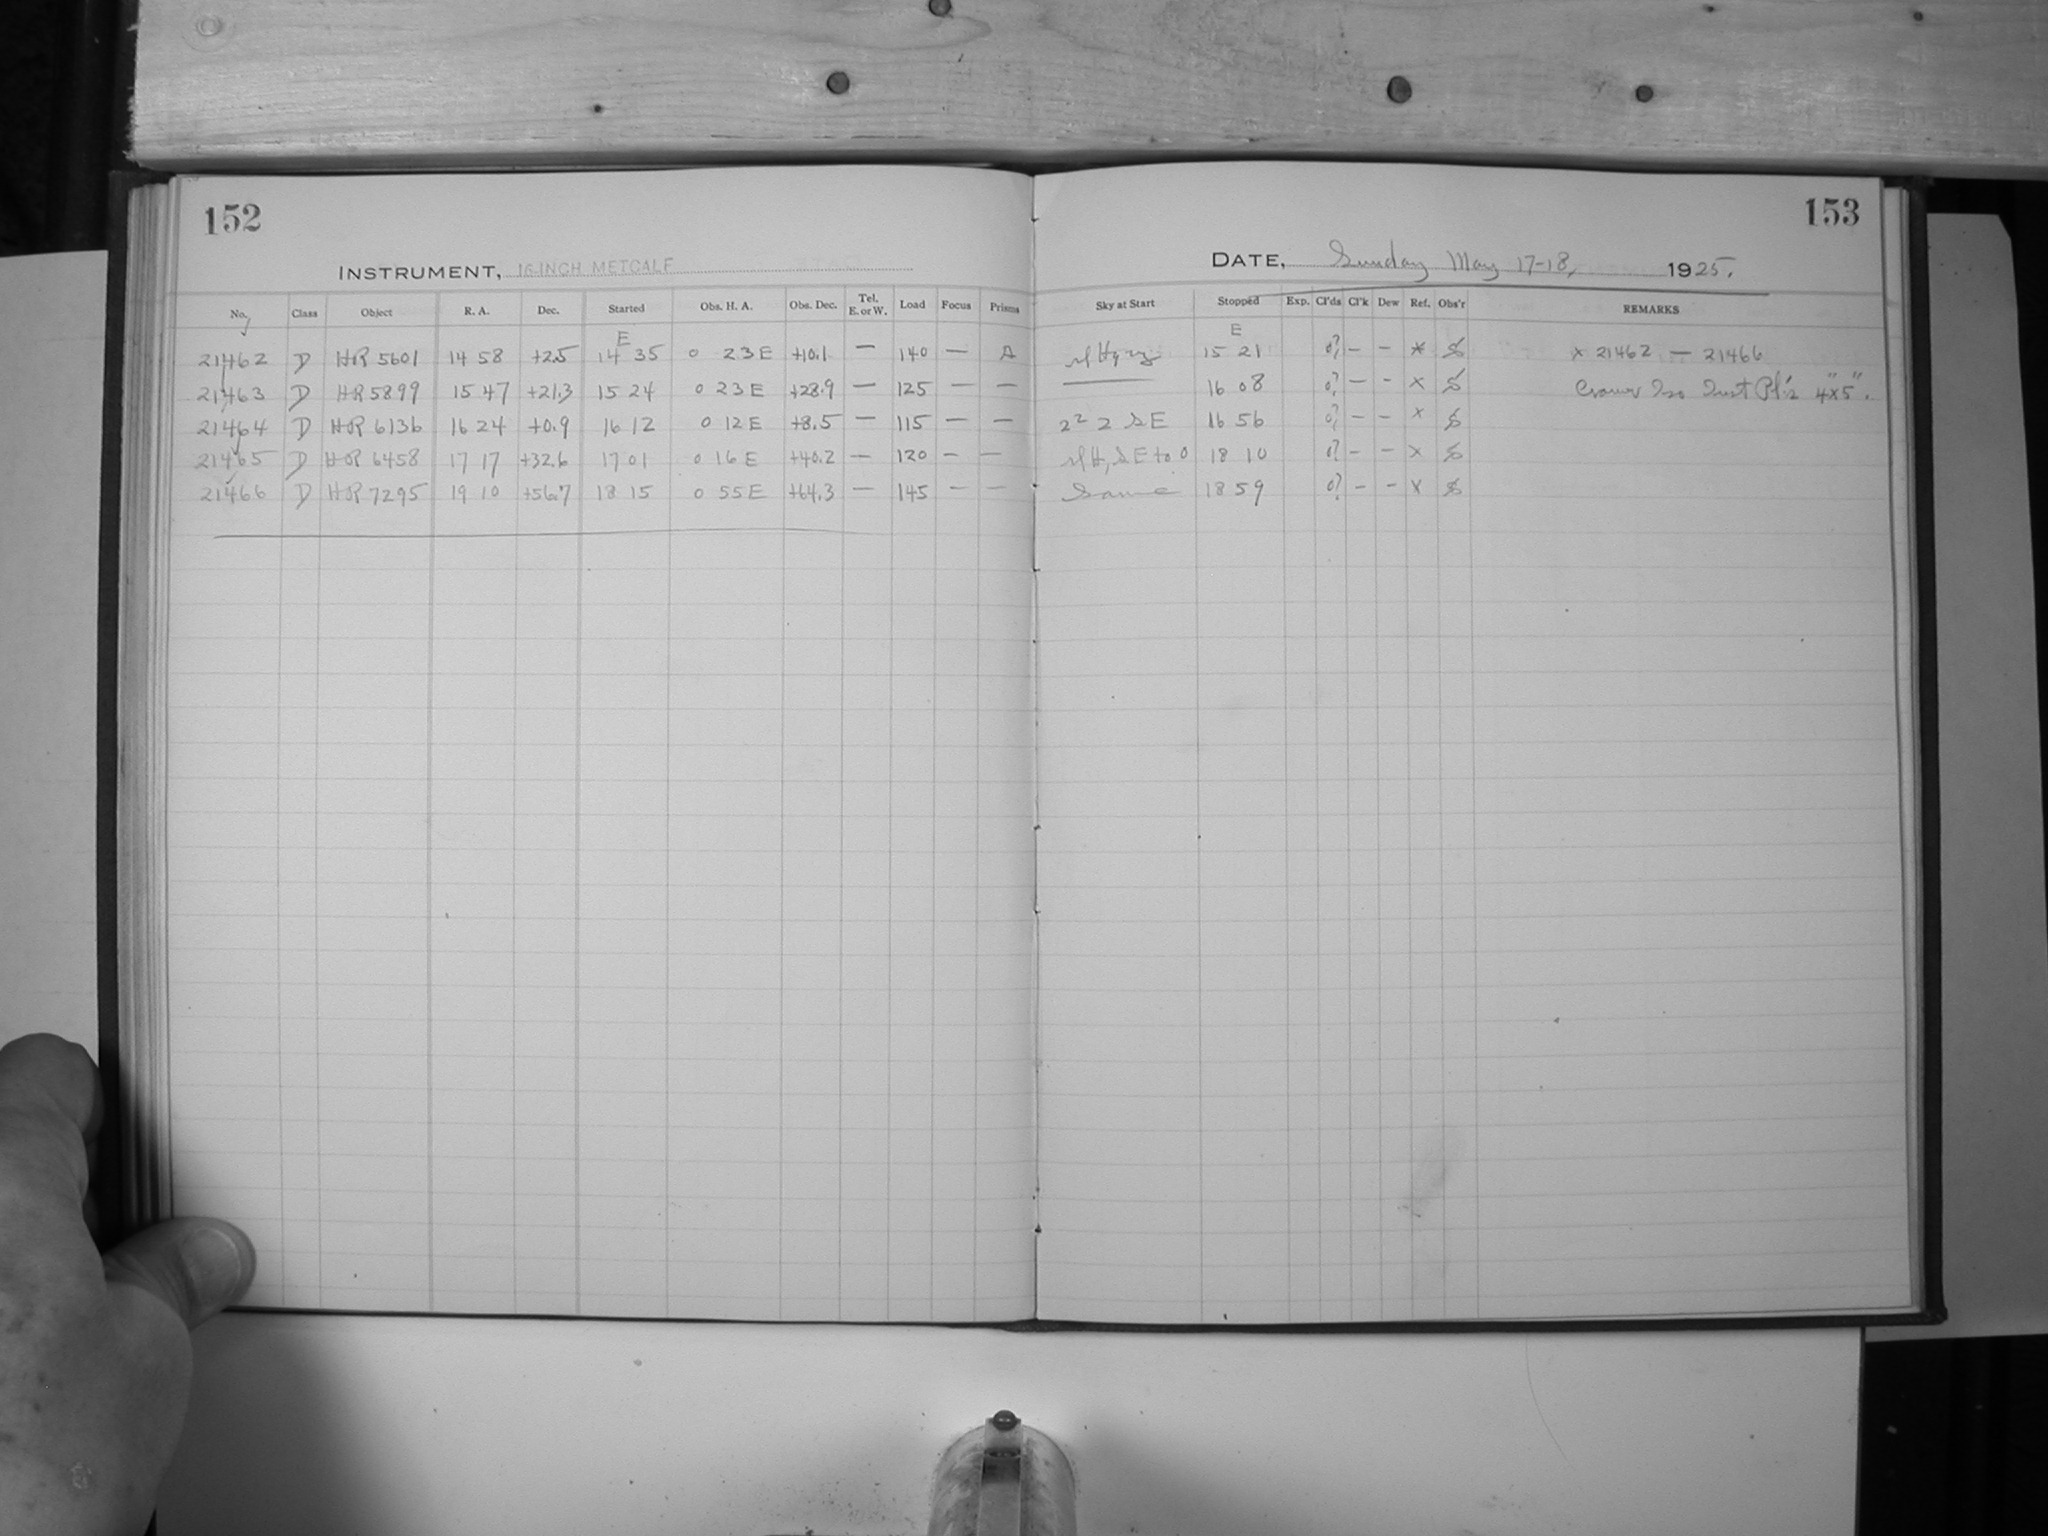 152
INSTRUMENT, 16-INCH METCALF
No. Class Object R. A. Dec. Started Obs. H. A. Obs. Dec. Tel. E. or W. Load Focus Prisms
E
21462 D HR 5601 14 58 +2.5 14 35 0 23 E +10.1 — 140 — A
21463 D HR 5899 15 47 +21.3 15 24 0 23 E +28.9 — 125 — —
21464 D HR 6136 16 24 +0.9 16 12 0 12 E +8.5 — 115 — —
21465 D HR 6458 17 17 +32.6 17 01 0 16 E +40.2 — 120 — —
21466 D HR 7295 19 10 +56.7 18 15 0 55 E +64.3 — 145 — —
153
DATE, Sunday May 17-18, 1925.
Sky at Start Stopped Exp. Cl'ds Cl'k Dew Ref. Obs'r REMARKS
E
15 21 0? — — × × 21462 — 21466
— 16 08 0? — - × 4"×5".
2² 2 SE 16 56 0? — — ×
SE to 0 18 10 0? — — ×
Same 18 59 0? — — ×